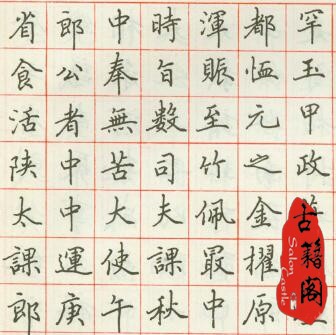 罕玉甲政
都恤元之金擢原
渾賑至竹佩最中
時旨数司夫課秋
中奉無苦大使午
郎公者中中運庚
省食活陕太課郎
古籍阁
Salon Castle